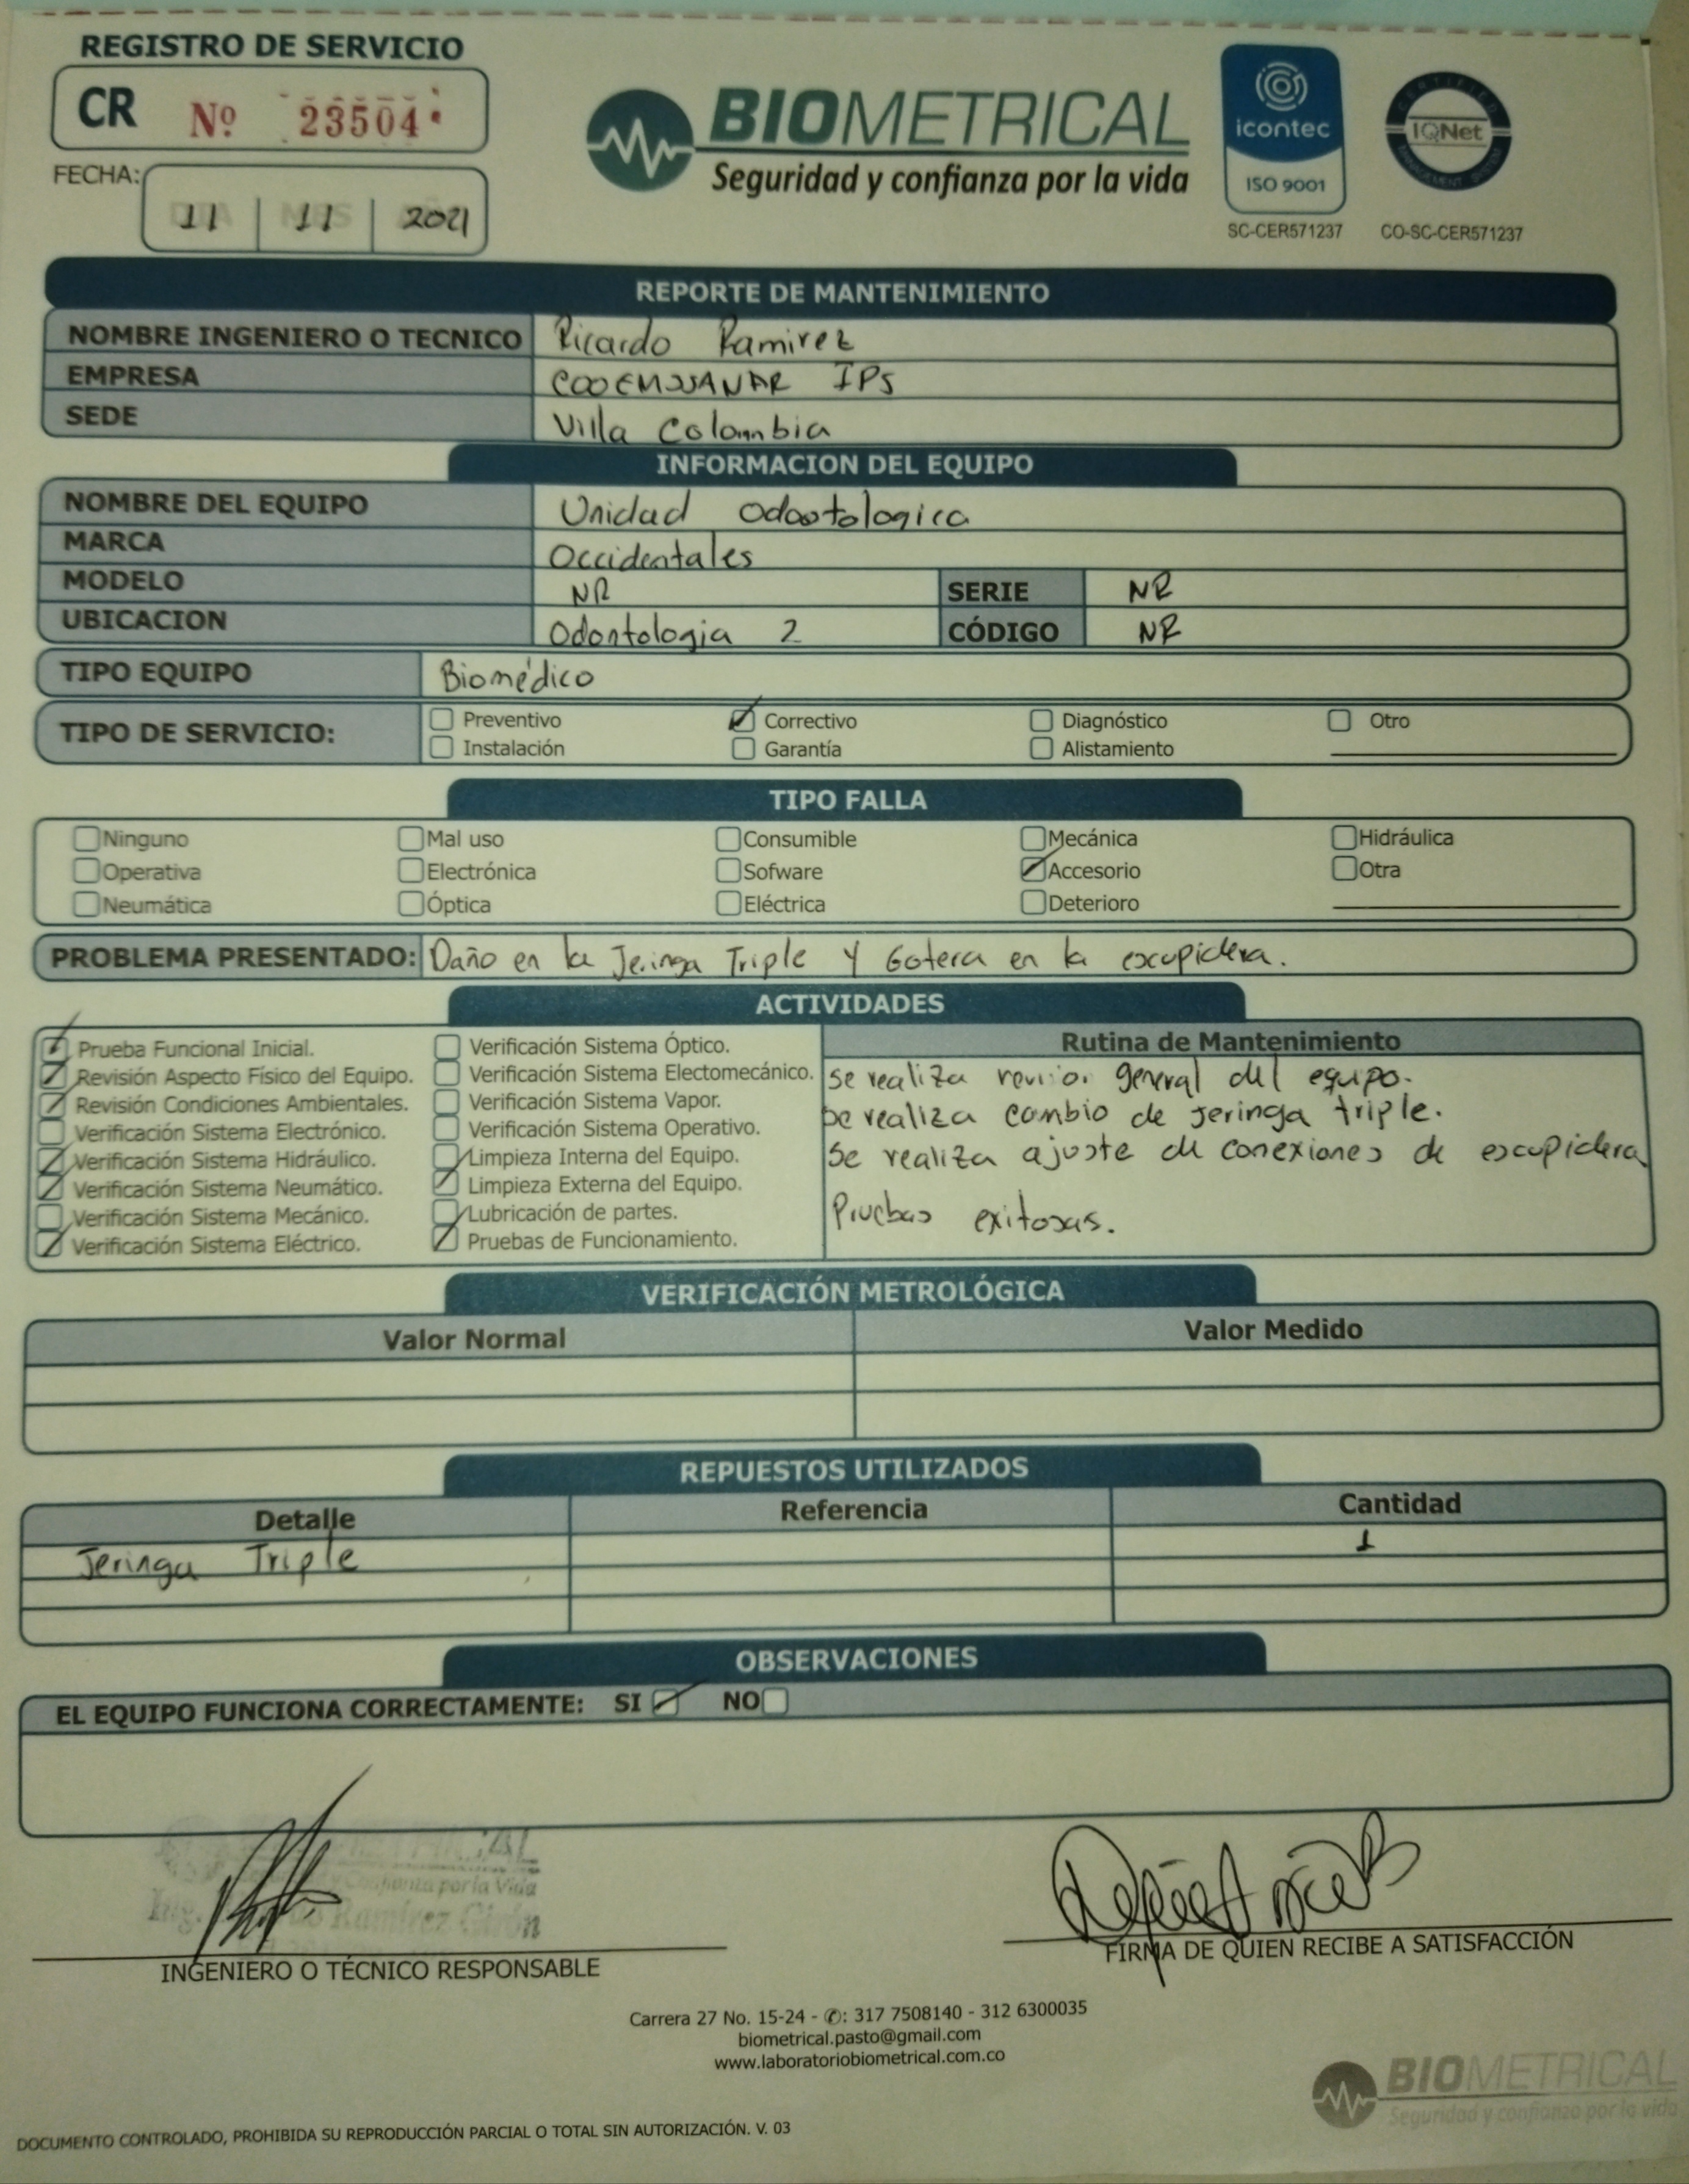 REGISTRO DE SERVICIO
CR Nº 23504
BIOMETRICAL
Seguridad y confianza por la vida
icontec
ISO 9001
SC-CER571237
CERTIFIED
IQNet
MANAGEMENT SYSTEM
CO-SC-CER571237
FECHA: 11 11 2021
REPORTE DE MANTENIMIENTO
NOMBRE INGENIERO O TECNICO Ricardo Ramirez
EMPRESA COOEMSSANAR IPS
SEDE Villa Colombia
INFORMACION DEL EQUIPO
NOMBRE DEL EQUIPO Unidad Odontologica
MARCA Occidentales
MODELO NR SERIE NR
UBICACION Odontologia 2 CÓDIGO NR
TIPO EQUIPO Biomédico
TIPO DE SERVICIO: Preventivo Correctivo Diagnóstico Otro
Instalación Garantía Alistamiento
TIPO FALLA
Ninguno Mal uso Consumible Mecánica Hidráulica
Operativa Electrónica Sofware Accesorio Otra
Neumática Óptica Eléctrica Deterioro
PROBLEMA PRESENTADO: Daño en la Jeringa Triple y Gotera en la escupidera.
ACTIVIDADES
Prueba Funcional Inicial.
Revisión Aspecto Físico del Equipo.
Revisión Condiciones Ambientales.
Verificación Sistema Electrónico.
Verificación Sistema Hidráulico.
Verificación Sistema Neumático.
Verificación Sistema Mecánico.
Verificación Sistema Eléctrico.
Verificación Sistema Óptico.
Verificación Sistema Electomecánico.
Verificación Sistema Vapor.
Verificación Sistema Operativo.
Limpieza Interna del Equipo.
Limpieza Externa del Equipo.
Lubricación de partes.
Pruebas de Funcionamiento.
Rutina de Mantenimiento
Se realiza revision general del equipo.
Se realiza cambio de jeringa triple.
Se realiza ajuste de conexiones de escupidera
Pruebas exitosas.
VERIFICACIÓN METROLÓGICA
Valor Normal Valor Medido
REPUESTOS UTILIZADOS
Detalle Referencia Cantidad
Jeringa Triple 1
OBSERVACIONES
EL EQUIPO FUNCIONA CORRECTAMENTE: SI NO
Confianza por la Vida
Ing. Ramírez Girón
INGENIERO O TÉCNICO RESPONSABLE
FIRMA DE QUIEN RECIBE A SATISFACCIÓN
Carrera 27 No. 15-24 - ✆: 317 7508140 - 312 6300035
biometrical.pasto@gmail.com
www.laboratoriobiometrical.com.co
BIOMETRICAL
Seguridad y confianza por la vida
DOCUMENTO CONTROLADO, PROHIBIDA SU REPRODUCCIÓN PARCIAL O TOTAL SIN AUTORIZACIÓN. V. 03